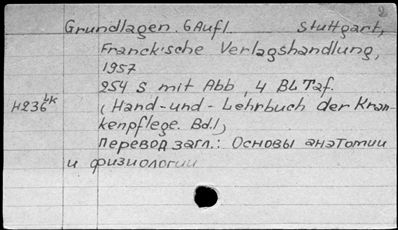 2
Grundlagen. 6Aufl. Stuttgart,
Franck'sche Verlagshandlung,
1957
254 S mit Abb, 4 Bl. Taf.
H236 LK (Hand-und-Lehrbuch der Kran-
kenpflege. Bd.I)
Перевод загл.: Основы анатомии
и физиологии